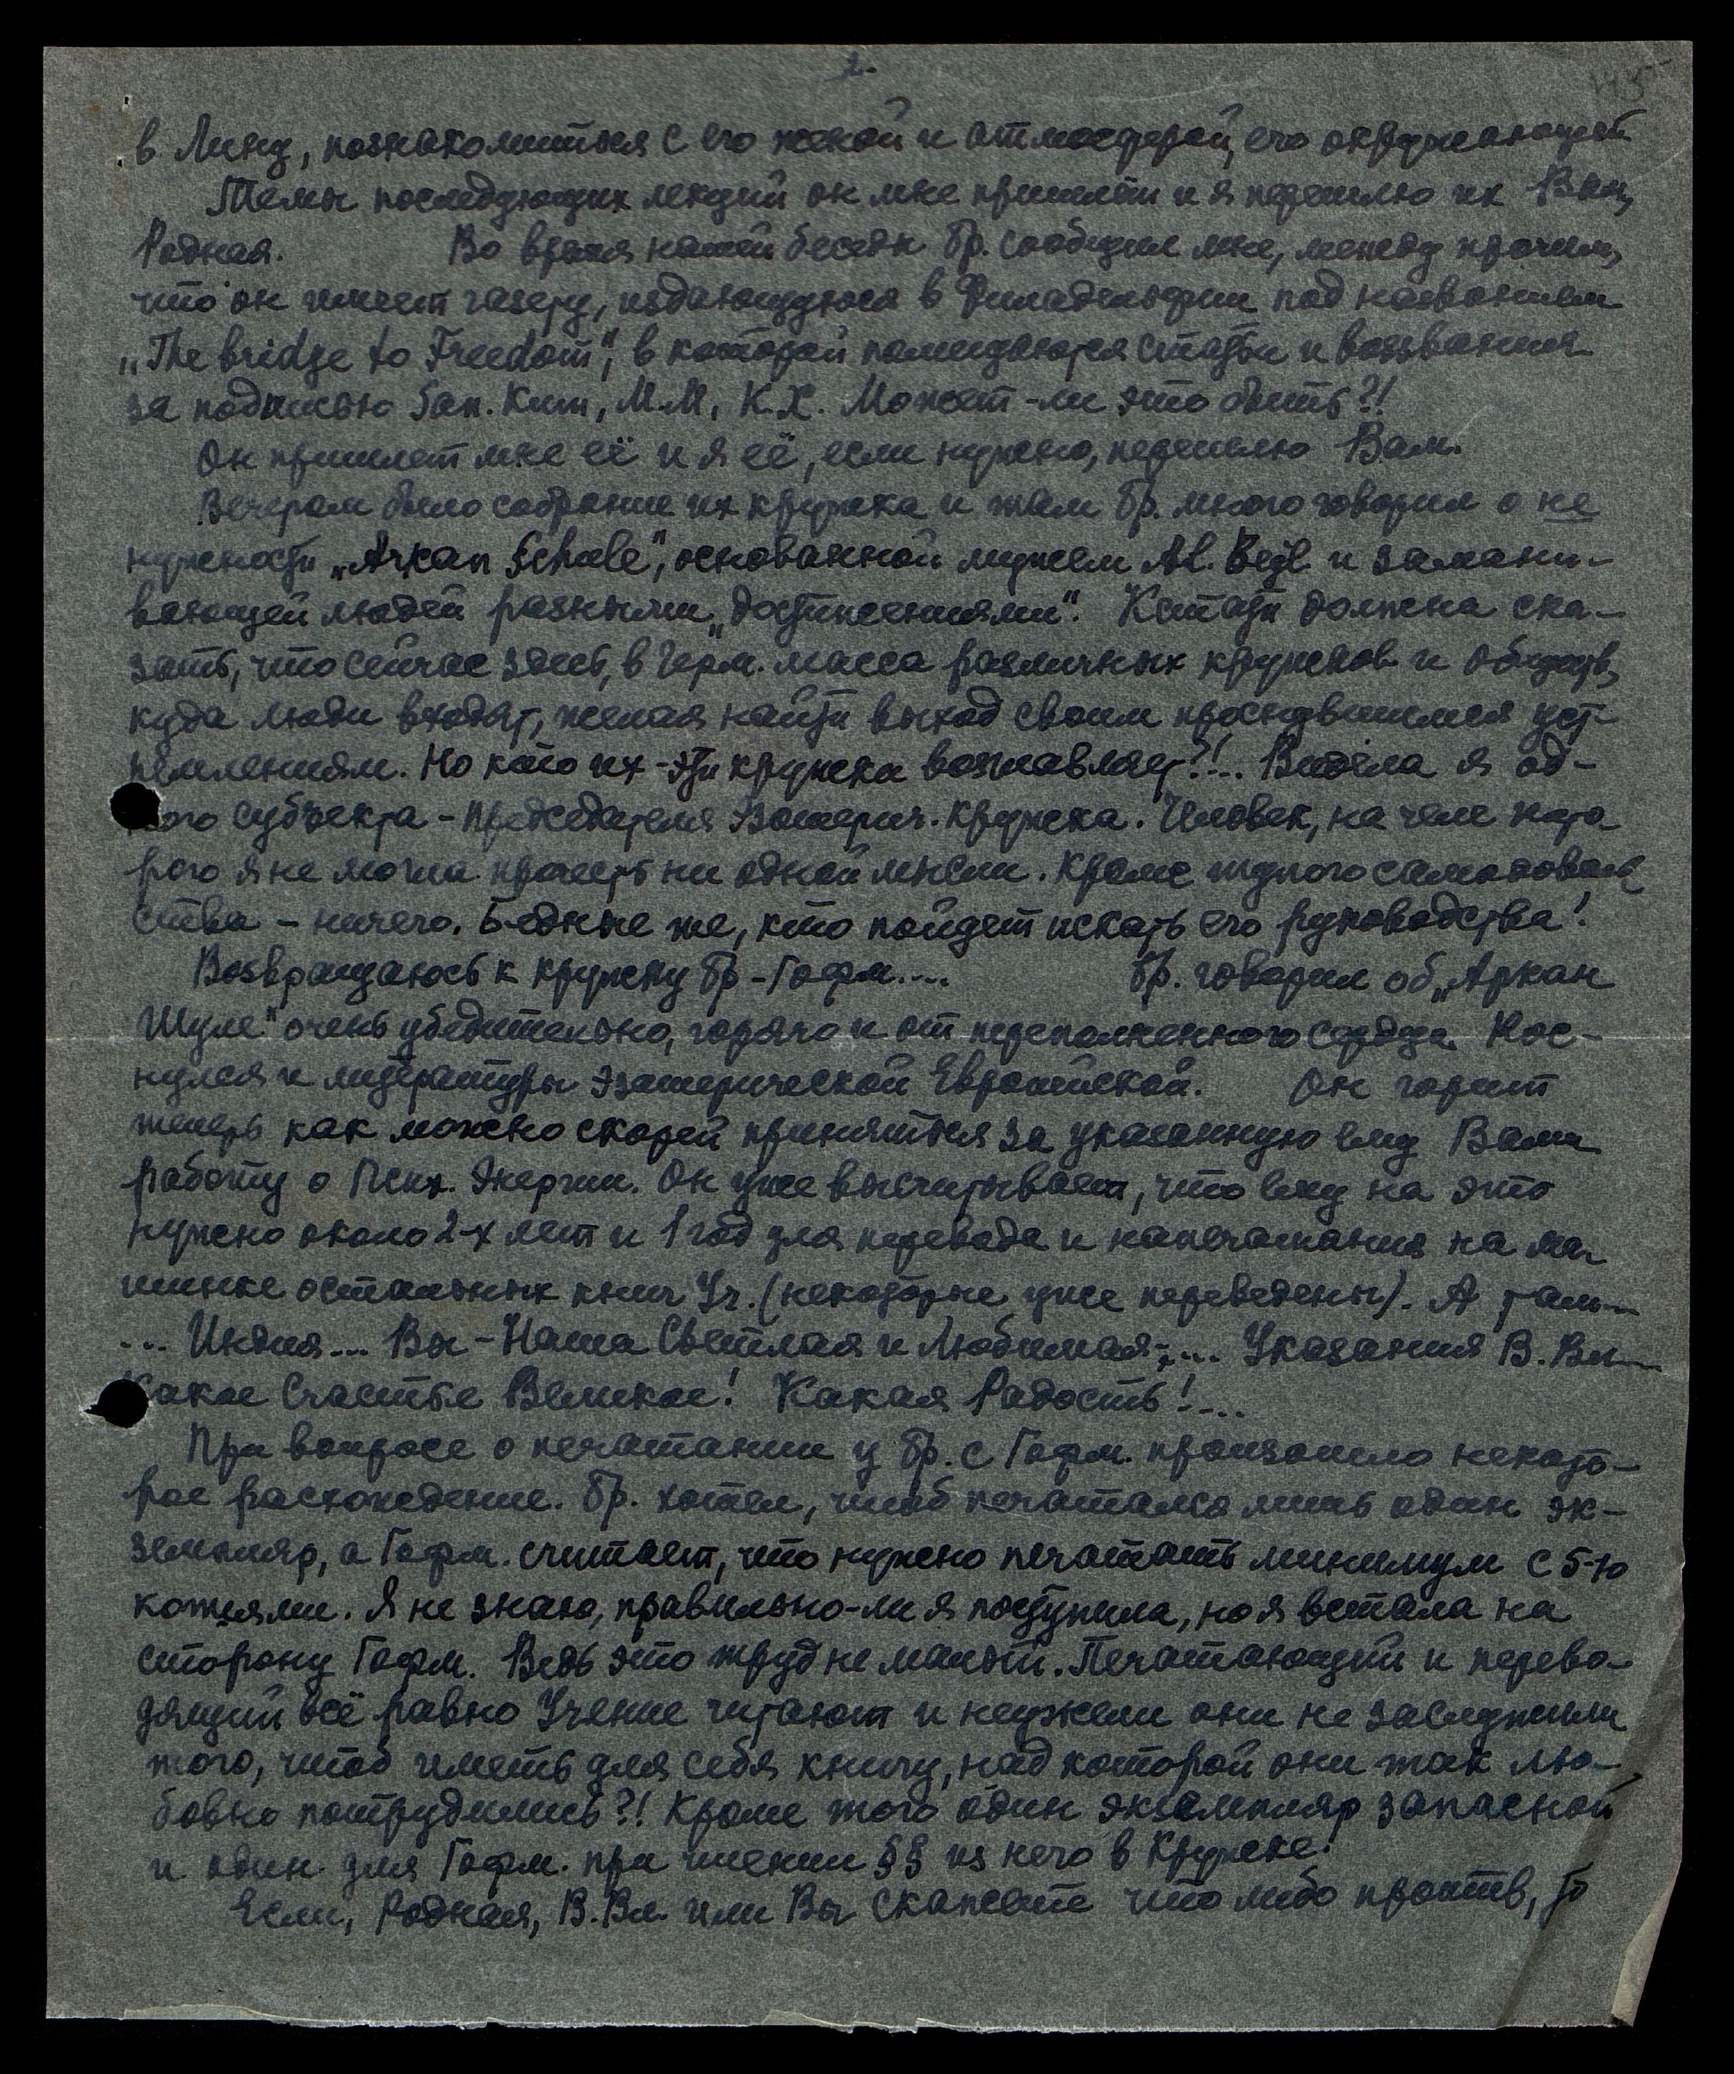 2.
в Линц, познакомиться с его женой и атмосферой, его окружающей
Темы последующих лекций он мне пришлёт и я перешлю их Вам,
Родная. Во время нашей беседы Бр. сообщил мне, между прочим,
что он имеет газету, издающуюся в Филадельфии под названием
„The bridge to Freedom", в которой помещаются статьи и воззвания
за подписью San. Кит, М.М, К.Х. Может-ли это быть?!
Он пришлет мне её и я её, если нужно, перешлю Вам.
Вечером было собрание их кружка и там Бр. много говорил о не
нужности „Arkan Schule", основанной мужем Al. Beyl. и замани-
вающей людей разными „достижениями". Кстати должна ска-
зать, что сейчас здесь, в Герм. масса различных кружков и обществ,
куда люди входят, желая найти выход своим проснувшимся уст-
ремлениям. Но кто их - эти кружки возглавляет?!... Видела я од-
ного субъекта - председателя Эзотерич. кружка. Человек, на челе кото-
рого я не могла прочесть ни одной мысли. Кроме тупого самодоволь
ства - ничего. Бедные же, кто пойдет искать его руководства!
Возвращаюсь к кружку Бр - Гофм.... Бр. говорил об „Аркан
Шуле" очень убедительно, горячо и от переполненного сердца. Кос-
нулся и литературы эзотерической Европейской. Он горит
теперь как можно скорей приняться за указанную ему Вами
работу о Псих. Энергии. Он уже высчитывает, что ему на это
нужно около 2-х лет и 1 год для перевода и напечатания на ма-
шинке остальных книг Уч. (некоторые уже переведены). А там...
... Индия... Вы - Наша Светлая и Любимая;... Указания В. Вл...
Какое Счастье Великое! Какая Радость!...
При вопросе о печатании у Бр. с Гофм. произошло некото-
рое расхождение. Бр. хотел, чтоб печаталсо лишь один эк-
земпляр, а Гофм. считает, что нужно печатать минимум с 5-ю
копиями. Я не знаю, правильно-ли я поступила, но я встала на
сторону Гофм. Ведь это труд не малый. Печатающий и перево-
дящий всё равно Учение читают и неужели они не заслужили
того, чтоб иметь для себя книгу, над которой они так лю-
бовно потрудились?! Кроме того один экземпляр запасной
и один для Гофм. при чтении §§ из него в Кружке!
Если, Родная, В. Вл. или Вы скажете что либо против, то